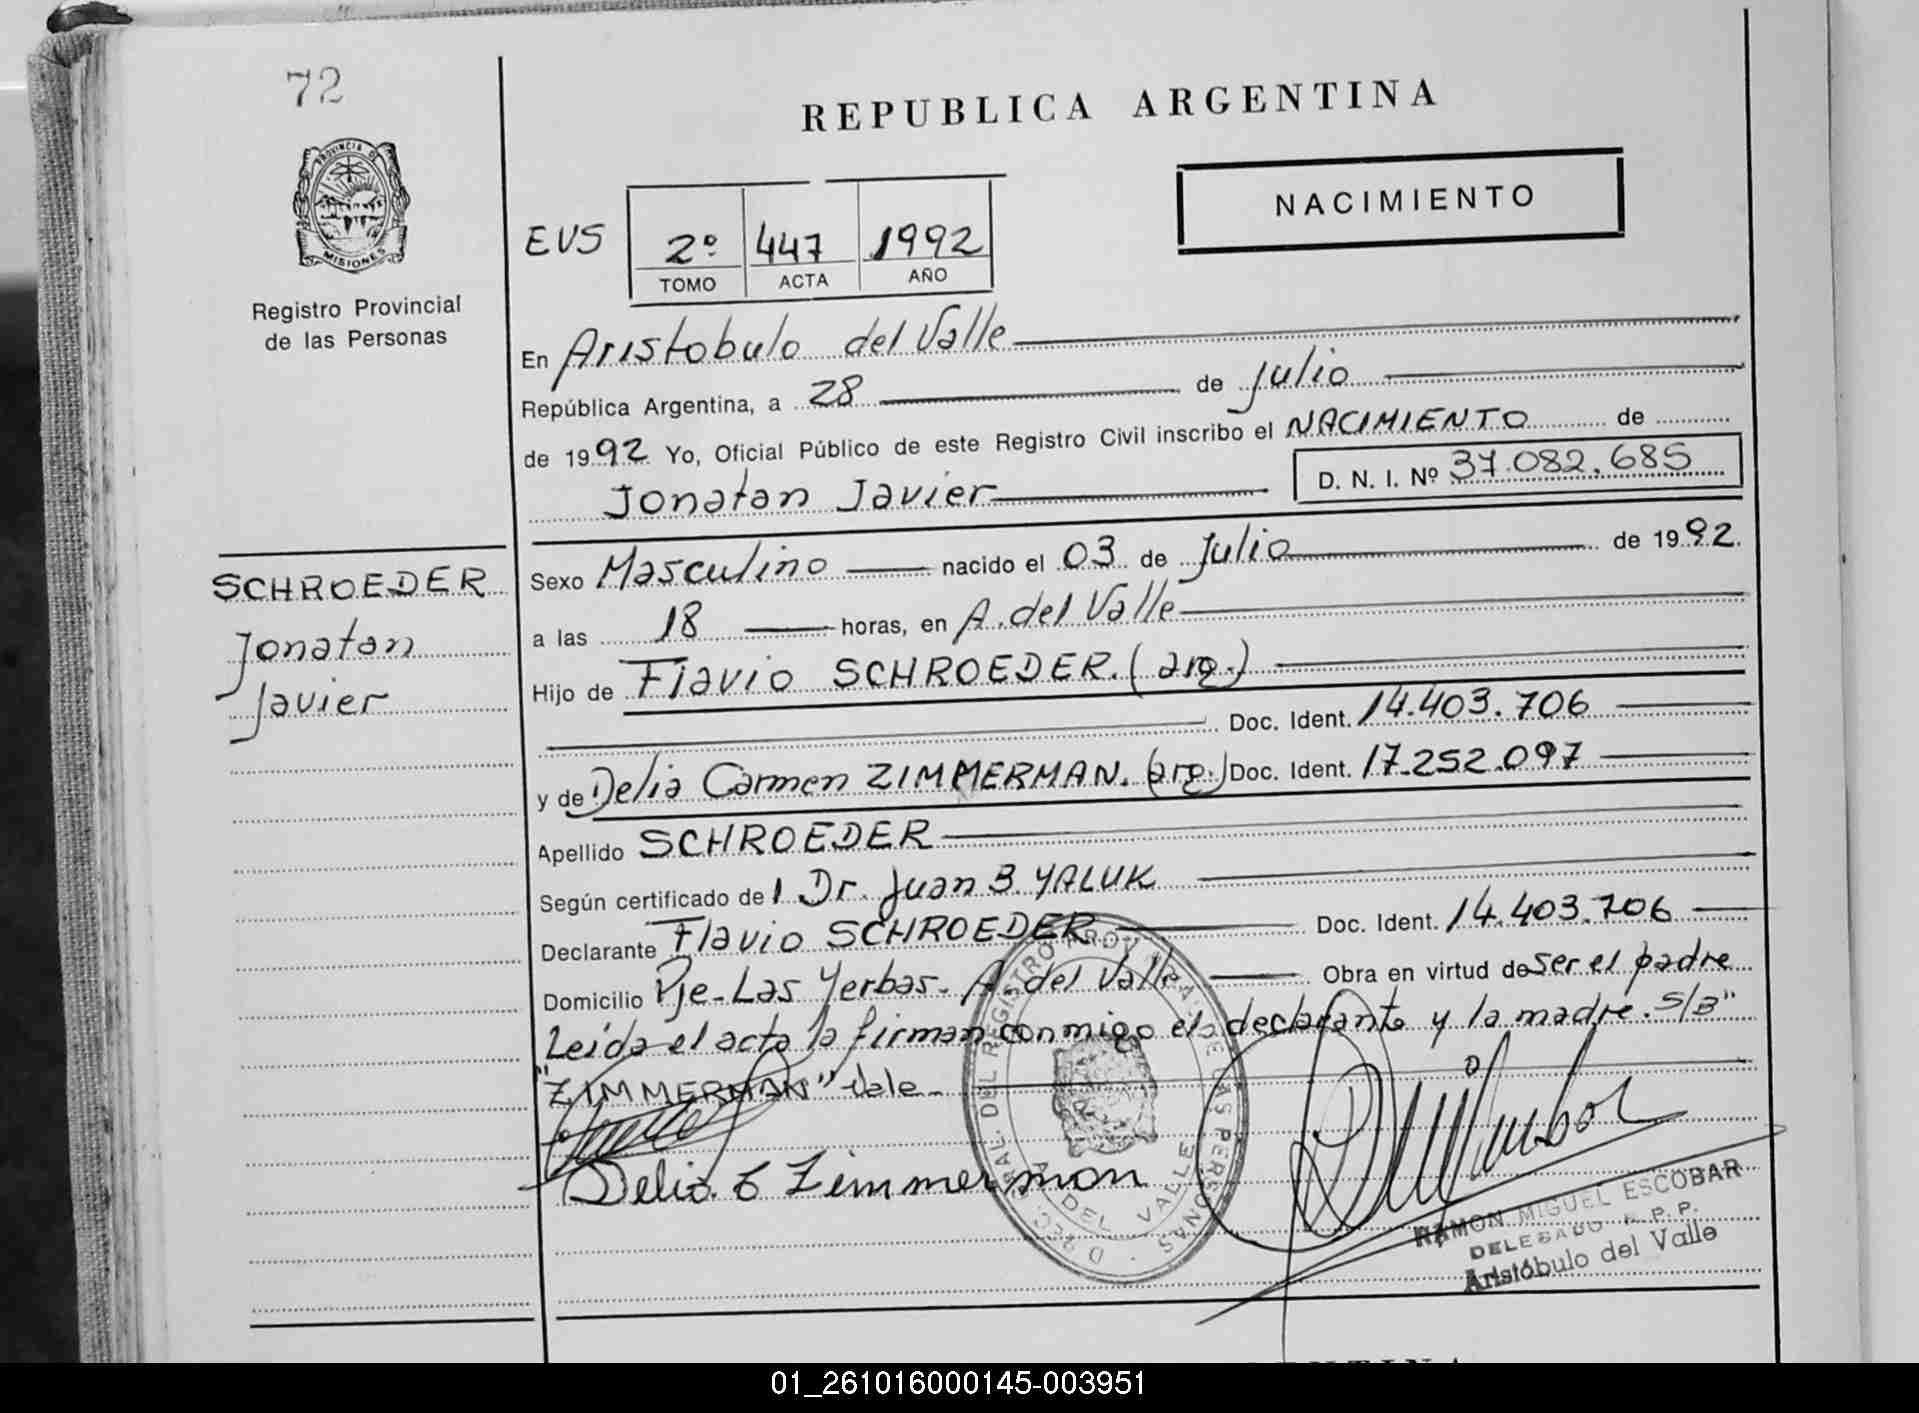 72
REPUBLICA ARGENTINA
PROVINCIA DE
MISIONES
Registro Provincial
de las Personas
EVS
2º 447 1992
TOMO ACTA AÑO
NACIMIENTO
En Aristobulo del Valle
República Argentina, a 28 de Julio
de 1992 Yo, Oficial Público de este Registro Civil inscribo el NACIMIENTO de
Jonatan Javier D. N. I. Nº 37.082.685
SCHROEDER
Jonatan
Javier
Sexo Masculino nacido el 03 de Julio de 1992.
a las 18 horas, en A. del Valle
Hijo de Flavio SCHROEDER. (arg.)
Doc. Ident. 14.403.706
y de Delia Carmen ZIMMERMAN. (arg.) Doc. Ident. 17.252.097
Apellido SCHROEDER
Según certificado del Dr. Juan B. YALUK
Declarante Flavio SCHROEDER Doc. Ident. 14.403.706
Domicilio Pje. Las Yerbas. A. del Valle Obra en virtud de ser el padre
Leída el acta la firman conmigo el declarante y la madre. S/B"
"ZIMMERMAN" Vale.
Delia C Zimmerman
A DEL VALLE
RAMON MIGUEL ESCOBAR
DELEGADO R. P. P.
Aristóbulo del Valle
01_261016000145-003951